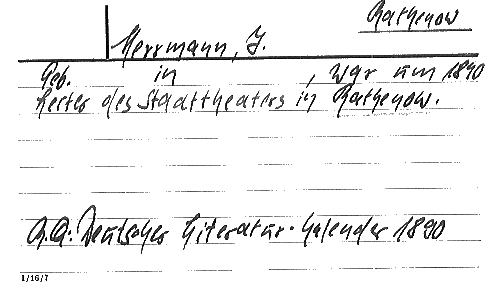 Rathenow
Herrmann, J.
Geb. in , war um 1890
Leiter des Stadttheaters in Rathenow.
R.A: Deutscher Literatur-Kalender 1890
1/16/7